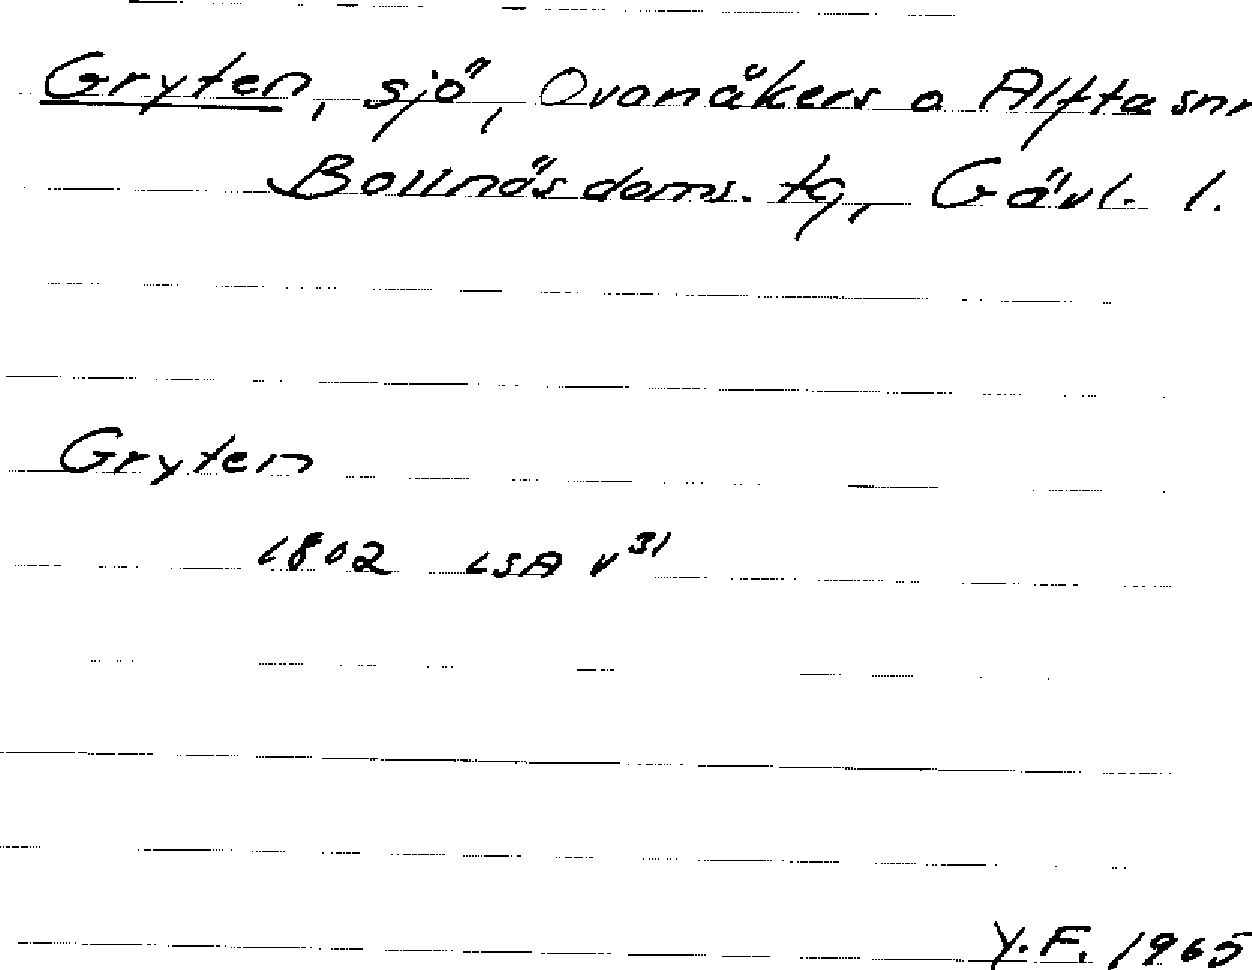 Gryten, sjö, Ovanåkers o Alfta snr
Bollnäs doms. tg, Gävl. l.
Gryten
1802 LSA v 31
Y.F. 1965